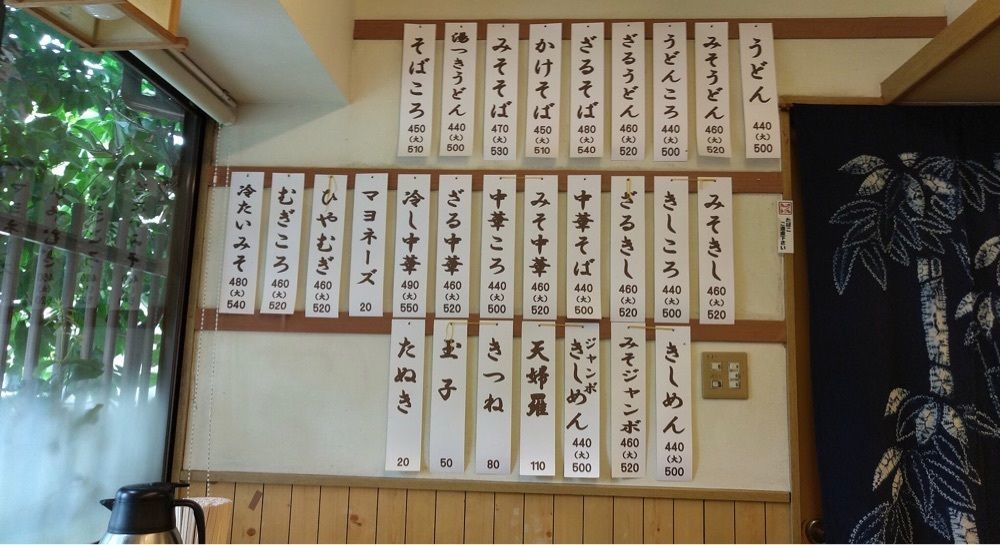 うどん
440
(大)
500
みそうどん
460
(大)
520
うどんころ
440
(大)
500
ざるうどん
460
(大)
520
ざるそば
480
(大)
540
かけそば
450
(大)
510
みそそば
470
(大)
530
湯つきうどん
440
(大)
500
そばころ
450
(大)
510
みそきし
460
(大)
520
きしころ
440
(大)
500
ざるきし
460
(大)
520
中華そば
440
(大)
500
みそ中華
460
(大)
520
中華ころ
440
(大)
500
ざる中華
460
(大)
520
冷し中華
490
(大)
550
マヨネーズ
20
ひやむぎ
460
(大)
520
むぎころ
460
(大)
520
冷たいみそ
480
(大)
540
きしめん
440
(大)
500
みそジャンボ
460
(大)
520
ジャンボ
きしめん
440
(大)
500
天婦羅
110
きつね
80
玉子
50
たぬき
20
たばこ
ご遠慮下さい